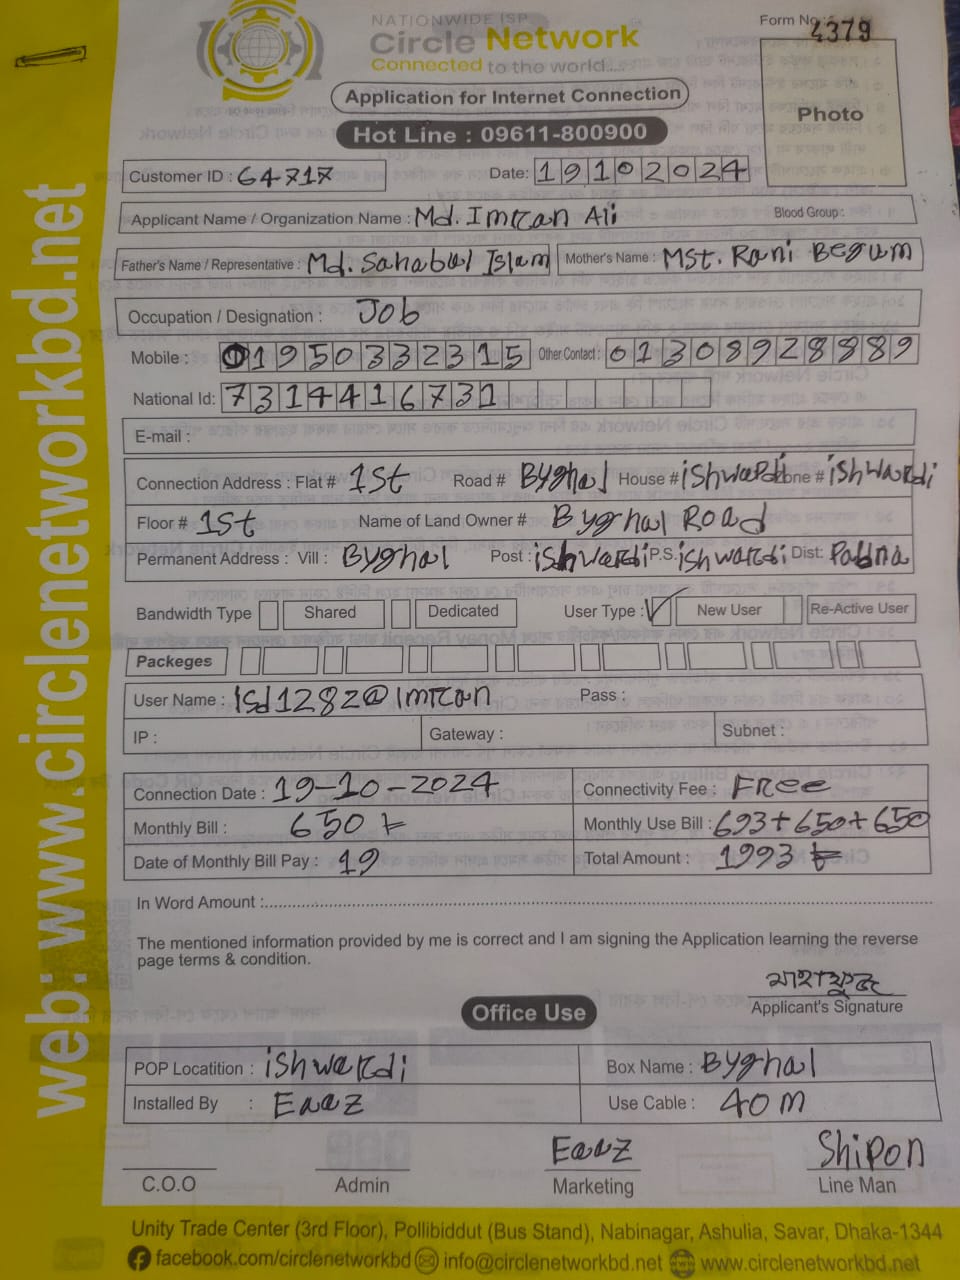 NATIONWIDE ISP
Circle Network
Connected to the world.....
Form No : 4379
Application for Internet Connection
Photo
Hot Line : 09611-800900
Customer ID : 64717 Date: 19102024
Applicant Name / Organization Name : Md. Imran Ali Blood Group :
Father's Name / Representative : Md. Sahabul Islam Mother's Name : MST. Rani Begum
Occupation / Designation : Job
Mobile : 01950332315 Other Contact : 01308928889
National Id: 7314416731
E-mail :
Connection Address : Flat # 1st Road # Byghal House # ishwardi Zone # ishwardi
Floor # 1st Name of Land Owner # Byghal Road
Permanent Address : Vill : Byghal Post : ishwardi P.S. ishwardi Dist: Pabna
Bandwidth Type Shared Dedicated User Type : New User Re-Active User
Packeges
User Name : Isd1282@imran Pass :
IP : Gateway : Subnet :
Connection Date : 19-10-2024 Connectivity Fee : Free
Monthly Bill : 650 Monthly Use Bill : 693+650+650
Date of Monthly Bill Pay : 19 Total Amount : 1993
In Word Amount :
The mentioned information provided by me is correct and I am signing the Application learning the reverse
page terms & condition.
Applicant's Signature
Office Use
POP Locatition : ishwardi Box Name : Byghal
Installed By : Eaaz Use Cable : 40m
Eaaz Shipon
C.O.O Admin Marketing Line Man
Unity Trade Center (3rd Floor), Pollibiddut (Bus Stand), Nabinagar, Ashulia, Savar, Dhaka-1344
facebook.com/circlenetworkbd info@circlenetworkbd.net www.circlenetworkbd.net
web: www.circlenetworkbd.net